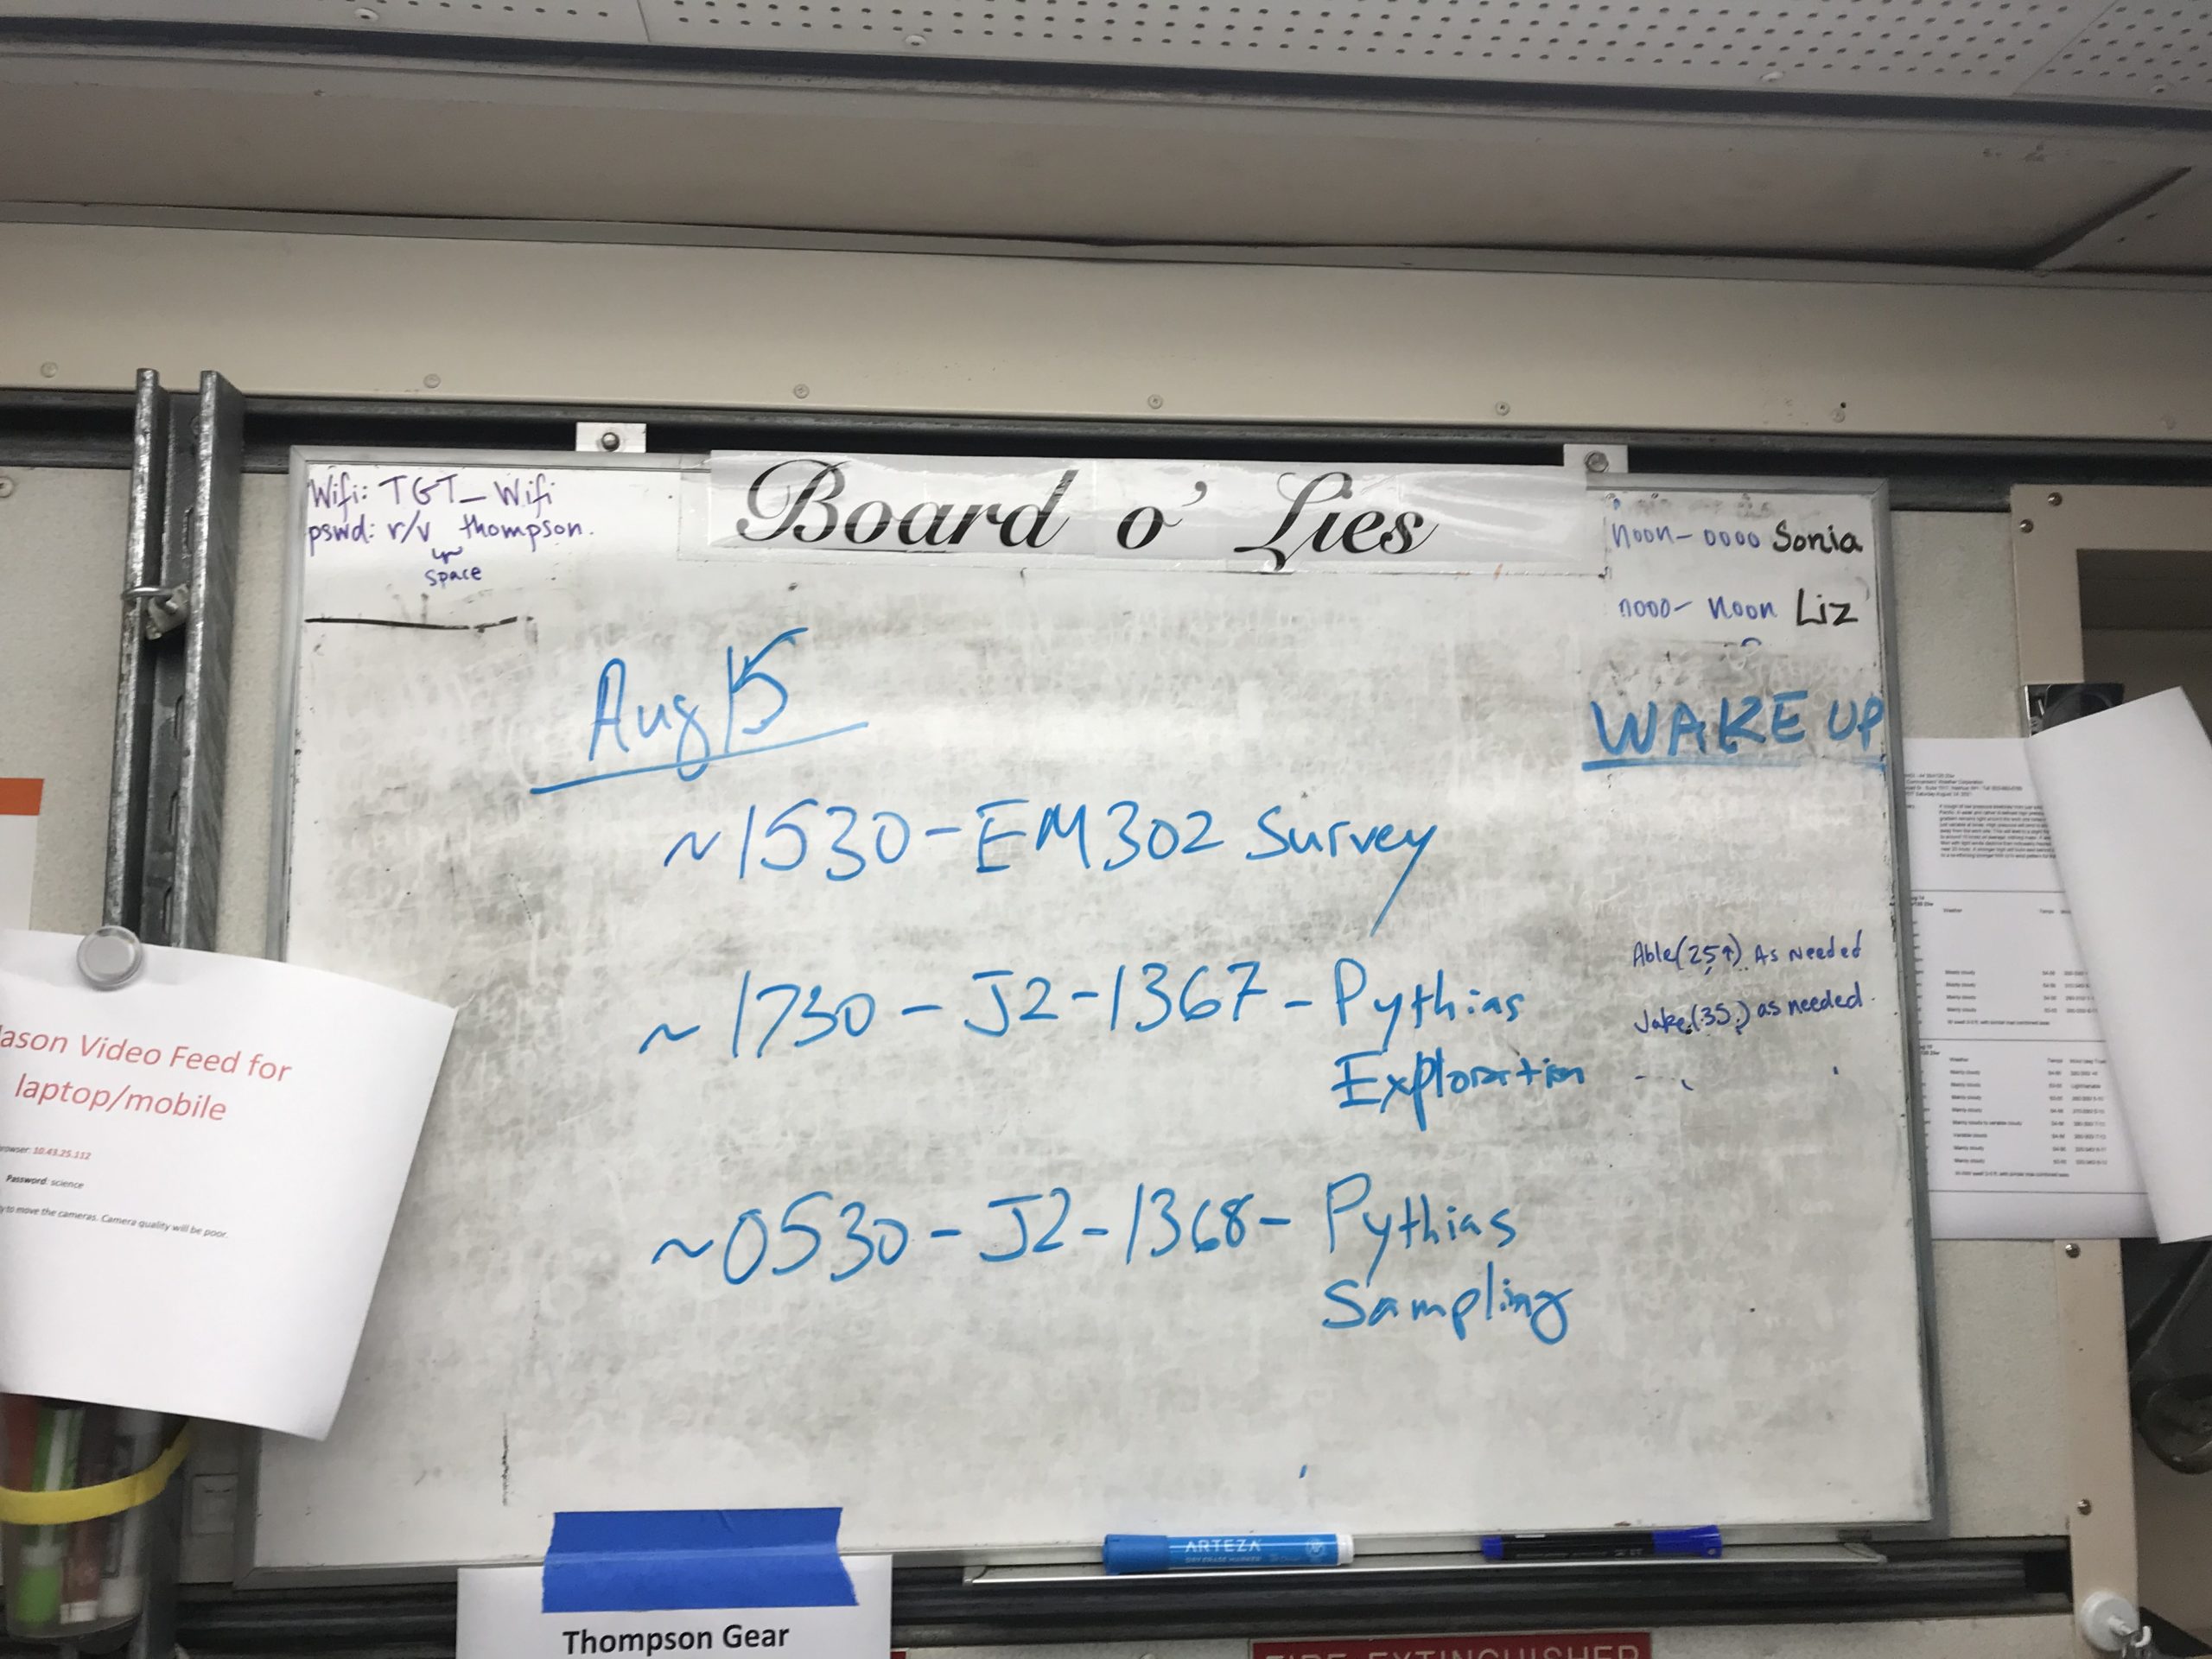 Board o' Lies
Wifi: TGT_Wifi
pswd: r/v thompson.
space
noon- 0000 Sonia
0000- noon Liz
WAKE UP
Aug 15
~1530-EM302 Survey
~1730-J2-1367-Pythias
Exploration
Able(25↑) As Needed
Jake(35) as needed
~0530-J2-1368-Pythias
Sampling
ason Video Feed for
laptop/mobile
rowser: 10.43.25.112
Password: science
y to move the cameras. Camera quality will be poor.
ARTEZA
DRY ERASE MARKER
Thompson Gear
FIRE EXTINGUISHER